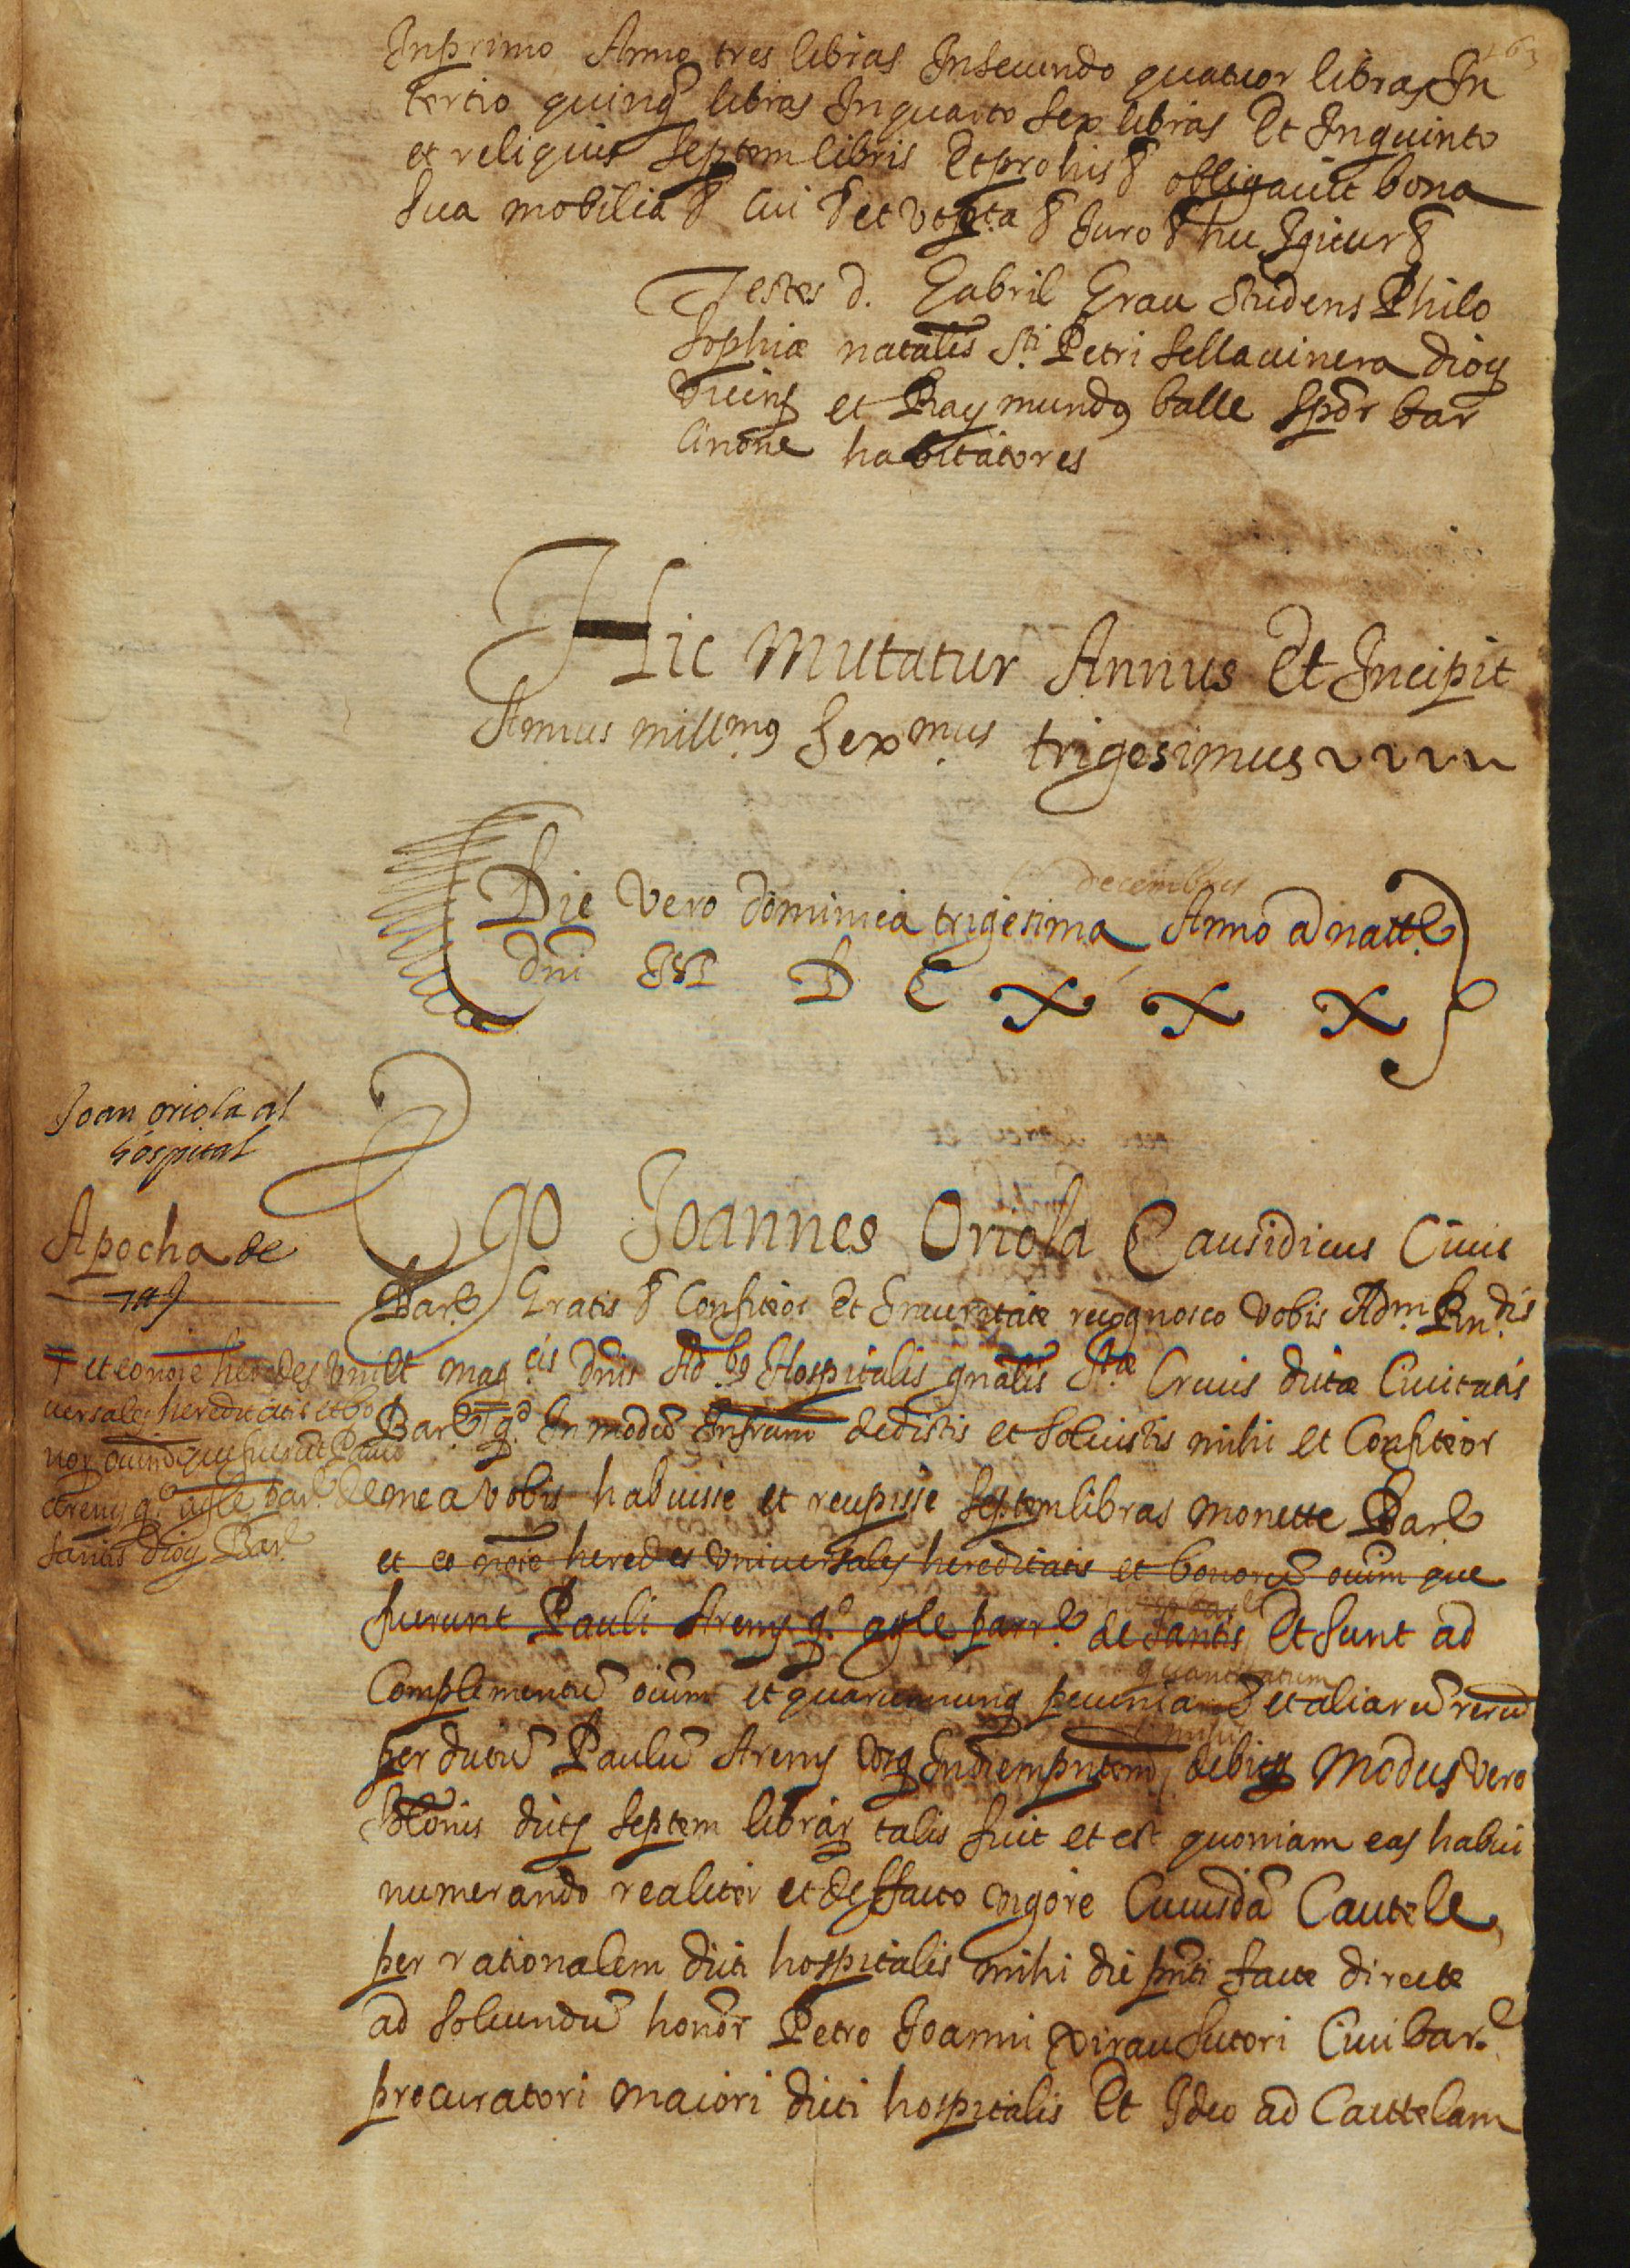 Inprimo Anno tres libras Insecundo quatuor libras In
tertio quinq libras Inquarto sex libras Et Inquinto
et reliquis septem libris Et pro his & obligavit bona
sua mobilia & Cui & et & Juro & hec Igitur &
Testes d. Gabril Grau Studens Philo
sophiæ natalis Sti Petri Sellavinera dioq
et Raymundq balle Spdr bar
cinone habitatores
Hic Mutatur Annus Et Incipit
Annus mill.mq sex.mus trigesimus
decembris
Die vero dominica trigesima Anno a natte
dni M D C X X X
Joan oriola al
hospital
Apocha de
7 ll
Ego Joannes Oriola Causidicus Civis
Bar.e Gratis & Confiteor et Inveritate recognosco vobis Adm. Rn.dis
et mag.cis dnis Ad.bq Hospitalis gnalis Stæ Crucis dictæ Civitatis
Bar.e q.d In modu Infrum dedistis et Solvistis mihi et Confiteor
me a vobis habuisse et recepisse septem libras monette Bare
et eo noie heredes universales hereditatis et bonoru oium que
fuerunt Pauli Streny q.o agle parr.e de Santis Et sunt ad
quantitatum
Complementu oium et quarumcunq pecuniaru et aliaru reru
per dictu Paulu Streny debitq Modus vero
Slonis dictq septem librar talis fuit et est quoniam eas habui
numerando realiter et deffacto vigore Cuiusda Cautele
per rationalem dicti hospitalis mihi die pnti facte directe
ad solvendu honor Petro Joanni Xirau Sutori Civi bar.e
procuratori maiori dicti hospitalis Et Ideo ad Cauttelam
+ et eo noie heredes uni
versales hereditatis et bo
nor oium que fuerunt Pauli
Streny q.o agle par.e de
Santis dioq Bar.e